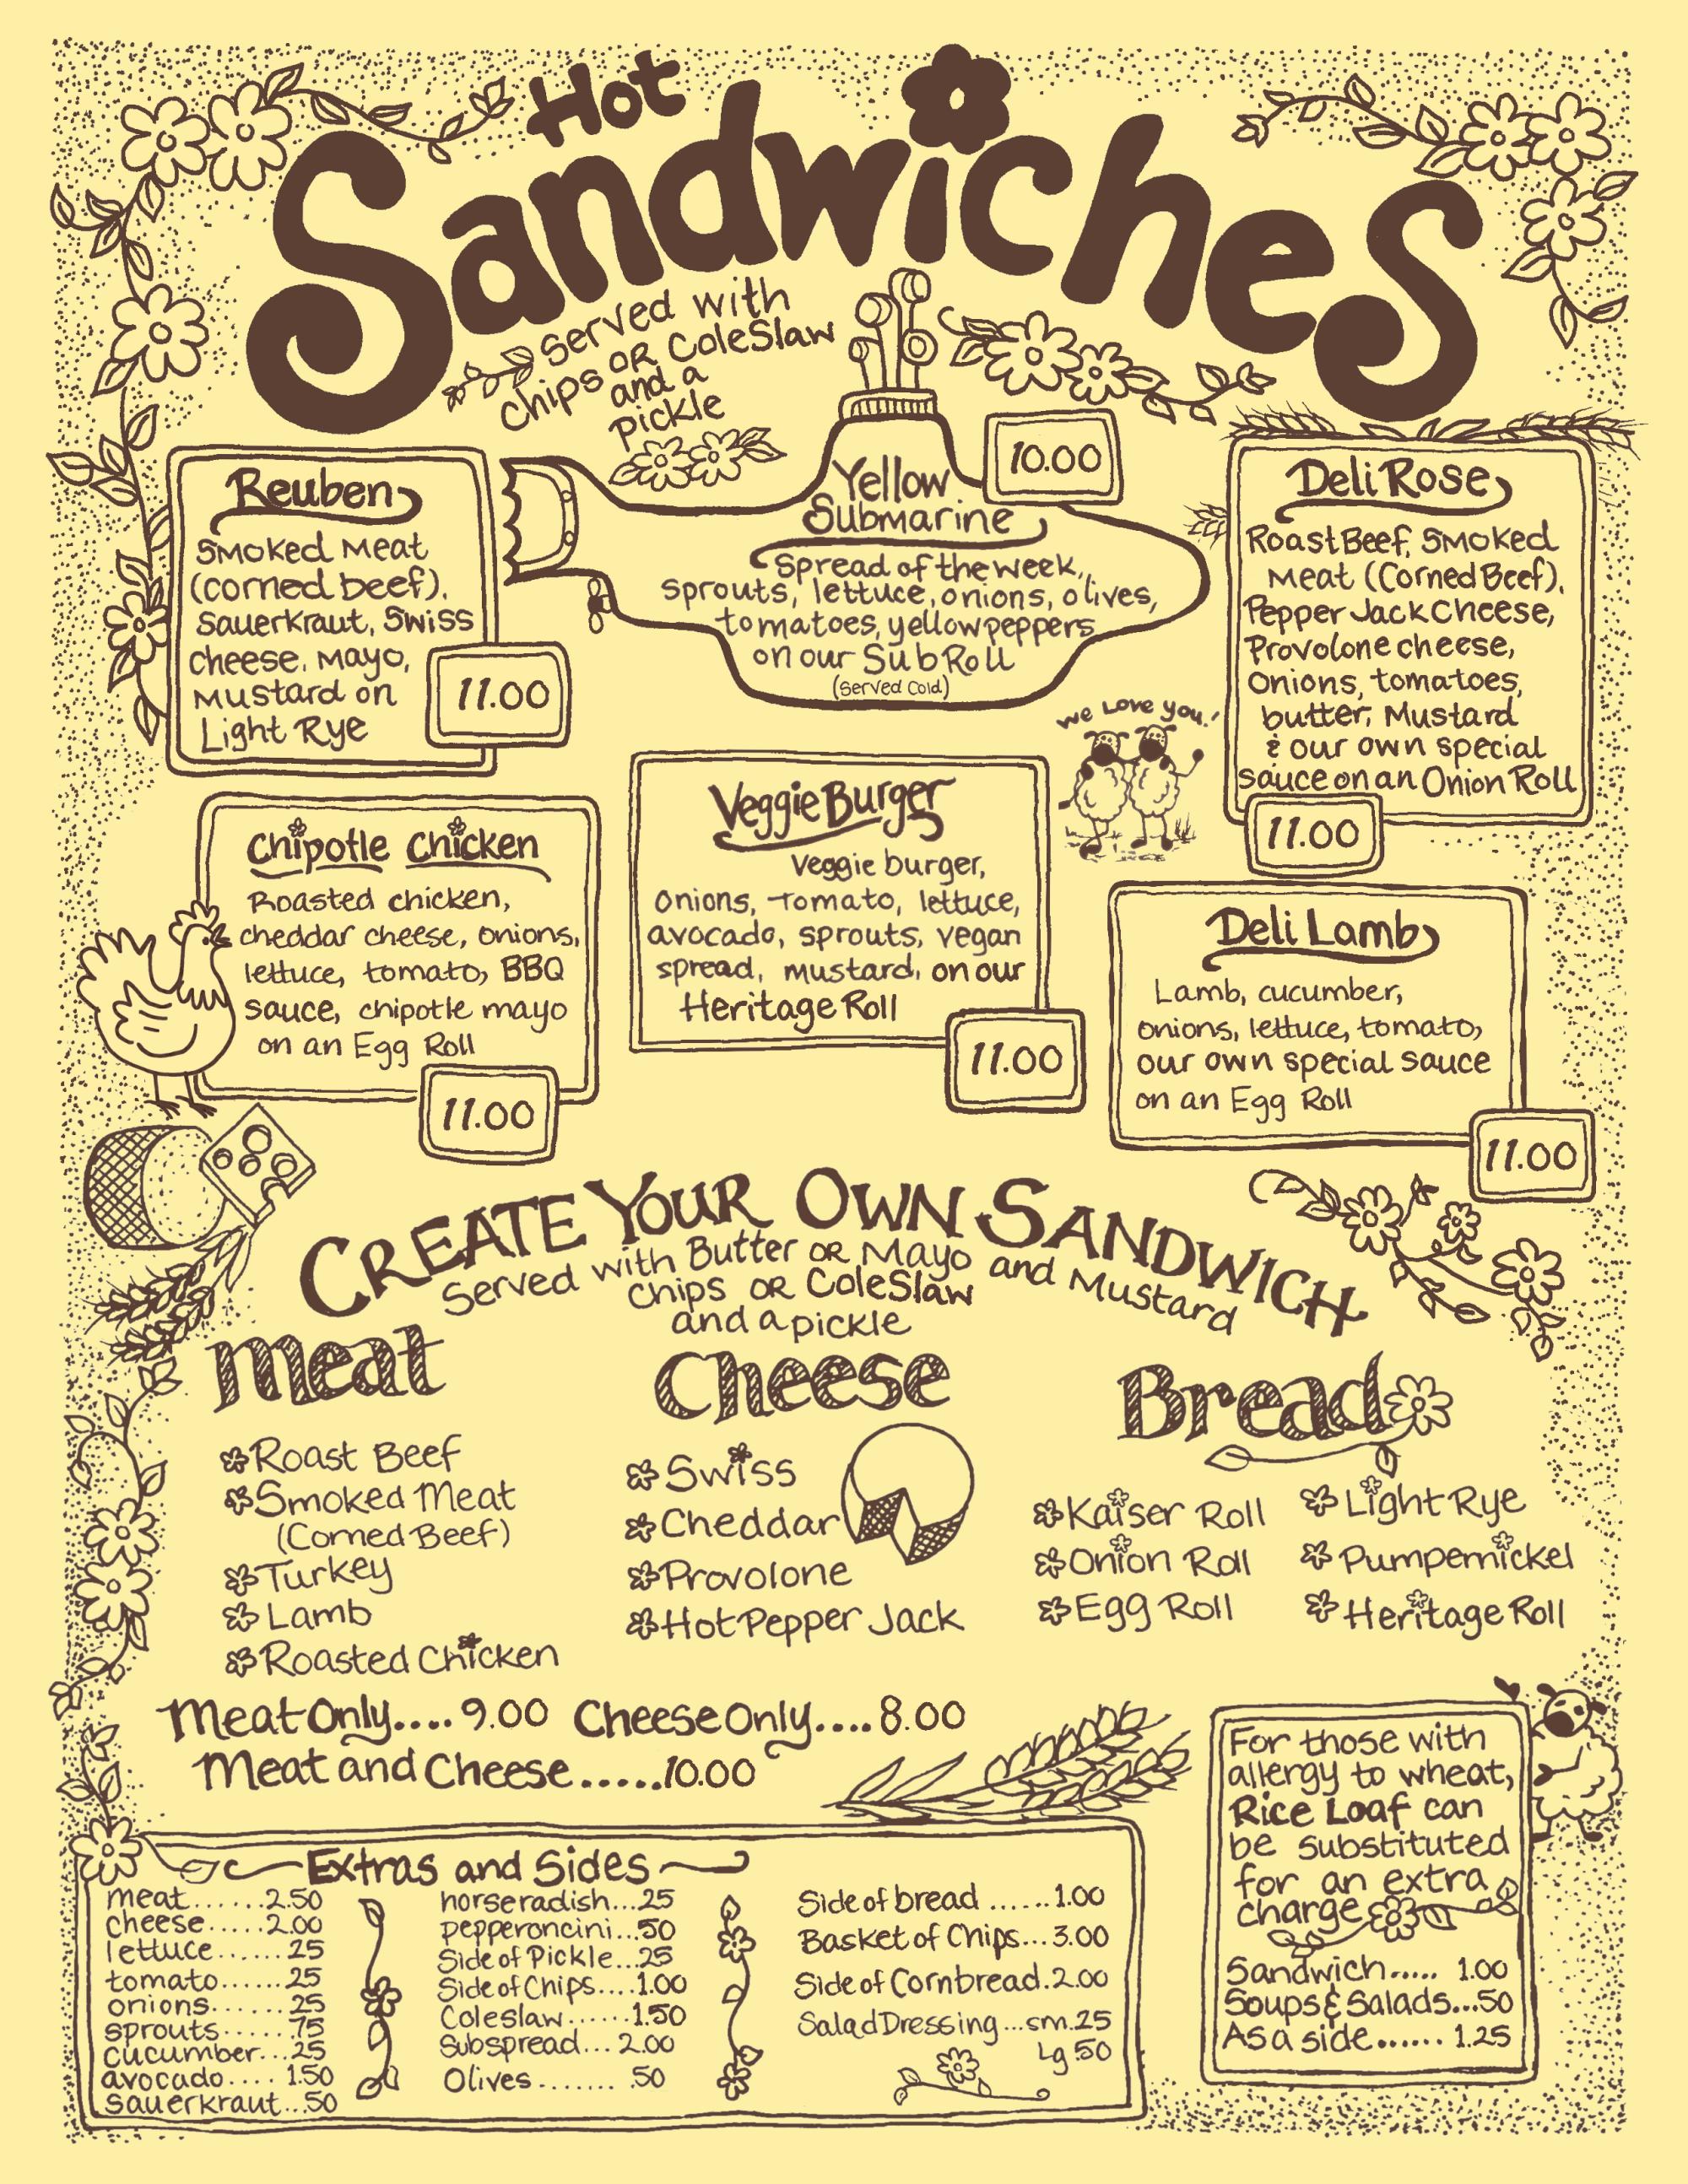 Hot
Sandwiches
Served with
Chips OR ColeSlaw
and a
Pickle
Reuben
Smoked Meat
(corned beef),
Sauerkraut, Swiss
Cheese, Mayo,
Mustard on
Light Rye
11.00
Yellow
Submarine
10.00
Spread of the week,
sprouts, lettuce, onions, olives,
tomatoes, yellow peppers
on our Sub Roll
(Served Cold)
Deli Rose
Roast Beef, Smoked
Meat (Corned Beef),
Pepper Jack Cheese,
Provolone cheese,
Onions, tomatoes,
butter, Mustard
& our own special
sauce on an Onion Roll
11.00
We Love You!
Chipotle Chicken
Roasted chicken,
cheddar cheese, onions,
lettuce, tomato, BBQ
sauce, chipotle mayo
on an Egg Roll
11.00
Veggie Burger
Veggie burger,
Onions, Tomato, lettuce,
avocado, sprouts, vegan
spread, mustard, on our
Heritage Roll
11.00
Deli Lamb
Lamb, cucumber,
onions, lettuce, tomato,
our own special sauce
on an Egg Roll
11.00
CREATE YOUR OWN SANDWICH
Served with Butter OR Mayo and Mustard
Chips OR ColeSlaw
and a pickle
Meat
Roast Beef
Smoked Meat
(Corned Beef)
Turkey
Lamb
Roasted Chicken
Cheese
Swiss
Cheddar
Provolone
Hot Pepper Jack
Bread
Kaiser Roll
Onion Roll
Egg Roll
Light Rye
Pumpernickel
Heritage Roll
Meat Only....9.00 Cheese Only....8.00
Meat and Cheese.....10.00
Extras and Sides
meat......2.50
cheese.....2.00
lettuce......25
tomato......25
onions.......25
sprouts......75
cucumber...25
avocado....1.50
sauerkraut...50
horseradish...25
pepperoncini...50
Side of Pickle...25
Side of Chips....1.00
Coleslaw......1.50
Subspread...2.00
Olives....... .50
Side of bread ......1.00
Basket of Chips...3.00
Side of Cornbread.2.00
Salad Dressing...sm.25
Lg 50
For those with
allergy to wheat,
Rice Loaf can
be substituted
for an extra
charge
Sandwich..... 1.00
Soups & Salads...50
As a side...... 1.25